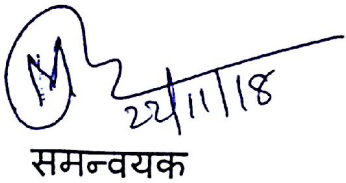 22/11/18
समन्वयक